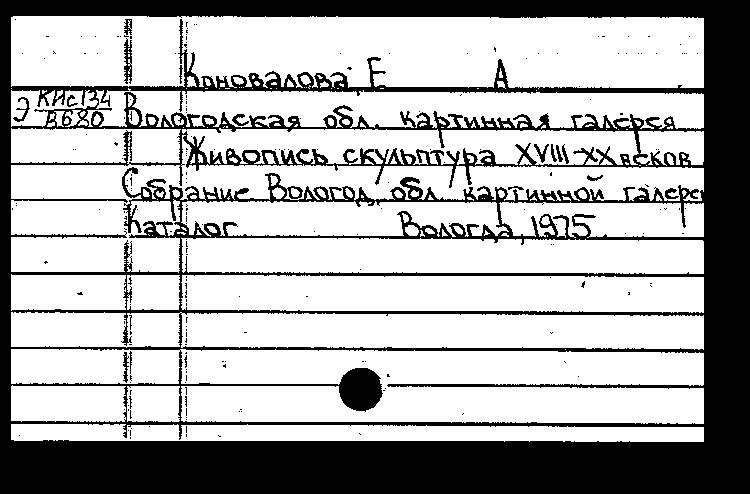 Коновалова, Е А
Э КИс134
В680
Вологодская обл. картинная галерея
Живопись, скульптура XVIII-XX веков.
Собрание Вологод. обл. картинной галере
Каталог. Вологда, 1975.